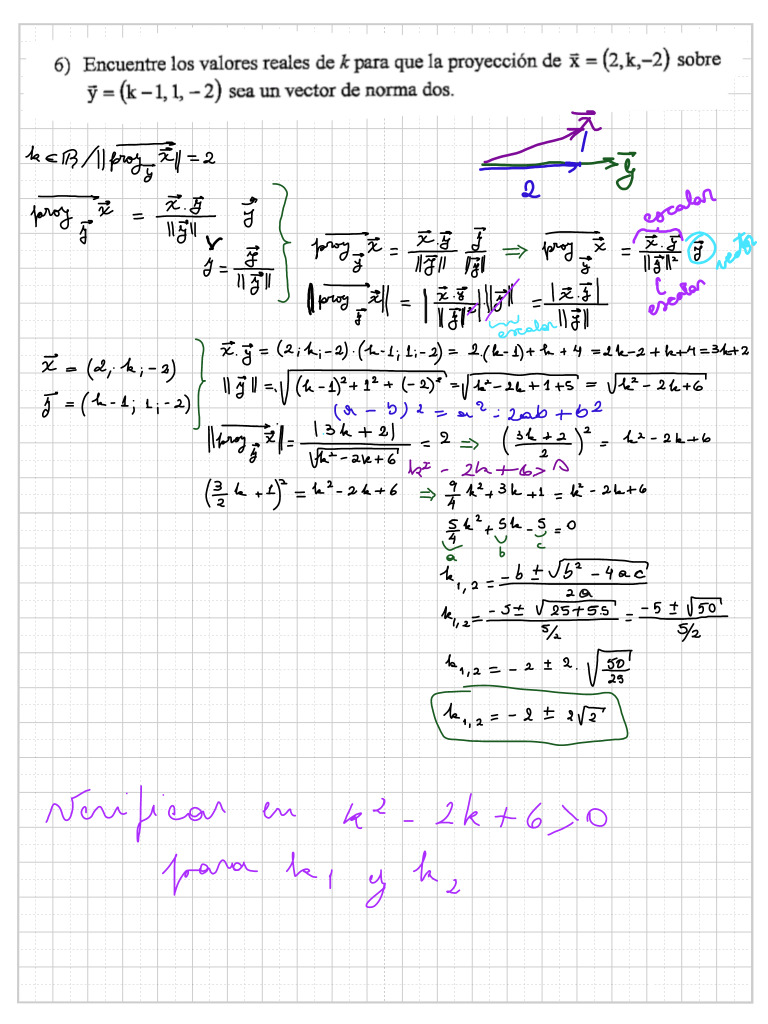 6) Encuentre los valores reales de k para que la proyección de x⃗ = (2,k,−2) sobre
y⃗ = (k −1, 1, −2) sea un vector de norma dos.
x⃗
y⃗
2
k ∈ ℝ / ||proy_y⃗ x⃗|| = 2
proy_y⃗ x⃗ = x⃗.y⃗ / ||y⃗|| y̌
y̌ = y⃗ / ||y⃗||
proy_y⃗ x⃗ = x⃗.y⃗ / ||y⃗|| y⃗ / ||y⃗|| ⇒ proy_y⃗ x⃗ = x⃗.y⃗ / ||y⃗||² y⃗
escalar
escalar
vector
||proy_y⃗ x⃗|| = |x⃗.y⃗ / ||y⃗||²| ||y⃗|| = |x⃗.y⃗| / ||y⃗||
escalar
x⃗ = (2; k; −2)
y⃗ = (k−1; 1; −2)
x⃗.y⃗ = (2; k; −2).(k−1; 1; −2) = 2.(k−1) + k + 4 = 2k−2+k+4 = 3k+2
||y⃗|| = √((k−1)² + 1² + (−2)²) = √(k²−2k+1+5) = √(k²−2k+6)
(a − b)2 = a² − 2ab + b²
||proy_y⃗ x⃗|| = |3k+2| / √(k²−2k+6) = 2 ⇒ ((3k+2)/2)² = k²−2k+6
k² − 2k + 6 > 0
(3/2 k + 1)² = k²−2k+6 ⇒ 9/4 k² + 3k + 1 = k²−2k+6
5/4 k² + 5k − 5 = 0
a b c
k₁,₂ = −b ± √(b² − 4ac) / 2a
k₁,₂ = −5 ± √(25+5.5) / 5/2 = −5 ± √50 / 5/2
k₁,₂ = −2 ± 2.√(50/25)
k₁,₂ = −2 ± 2√2
Verificar en k² − 2k + 6 > 0
para k₁ y k₂